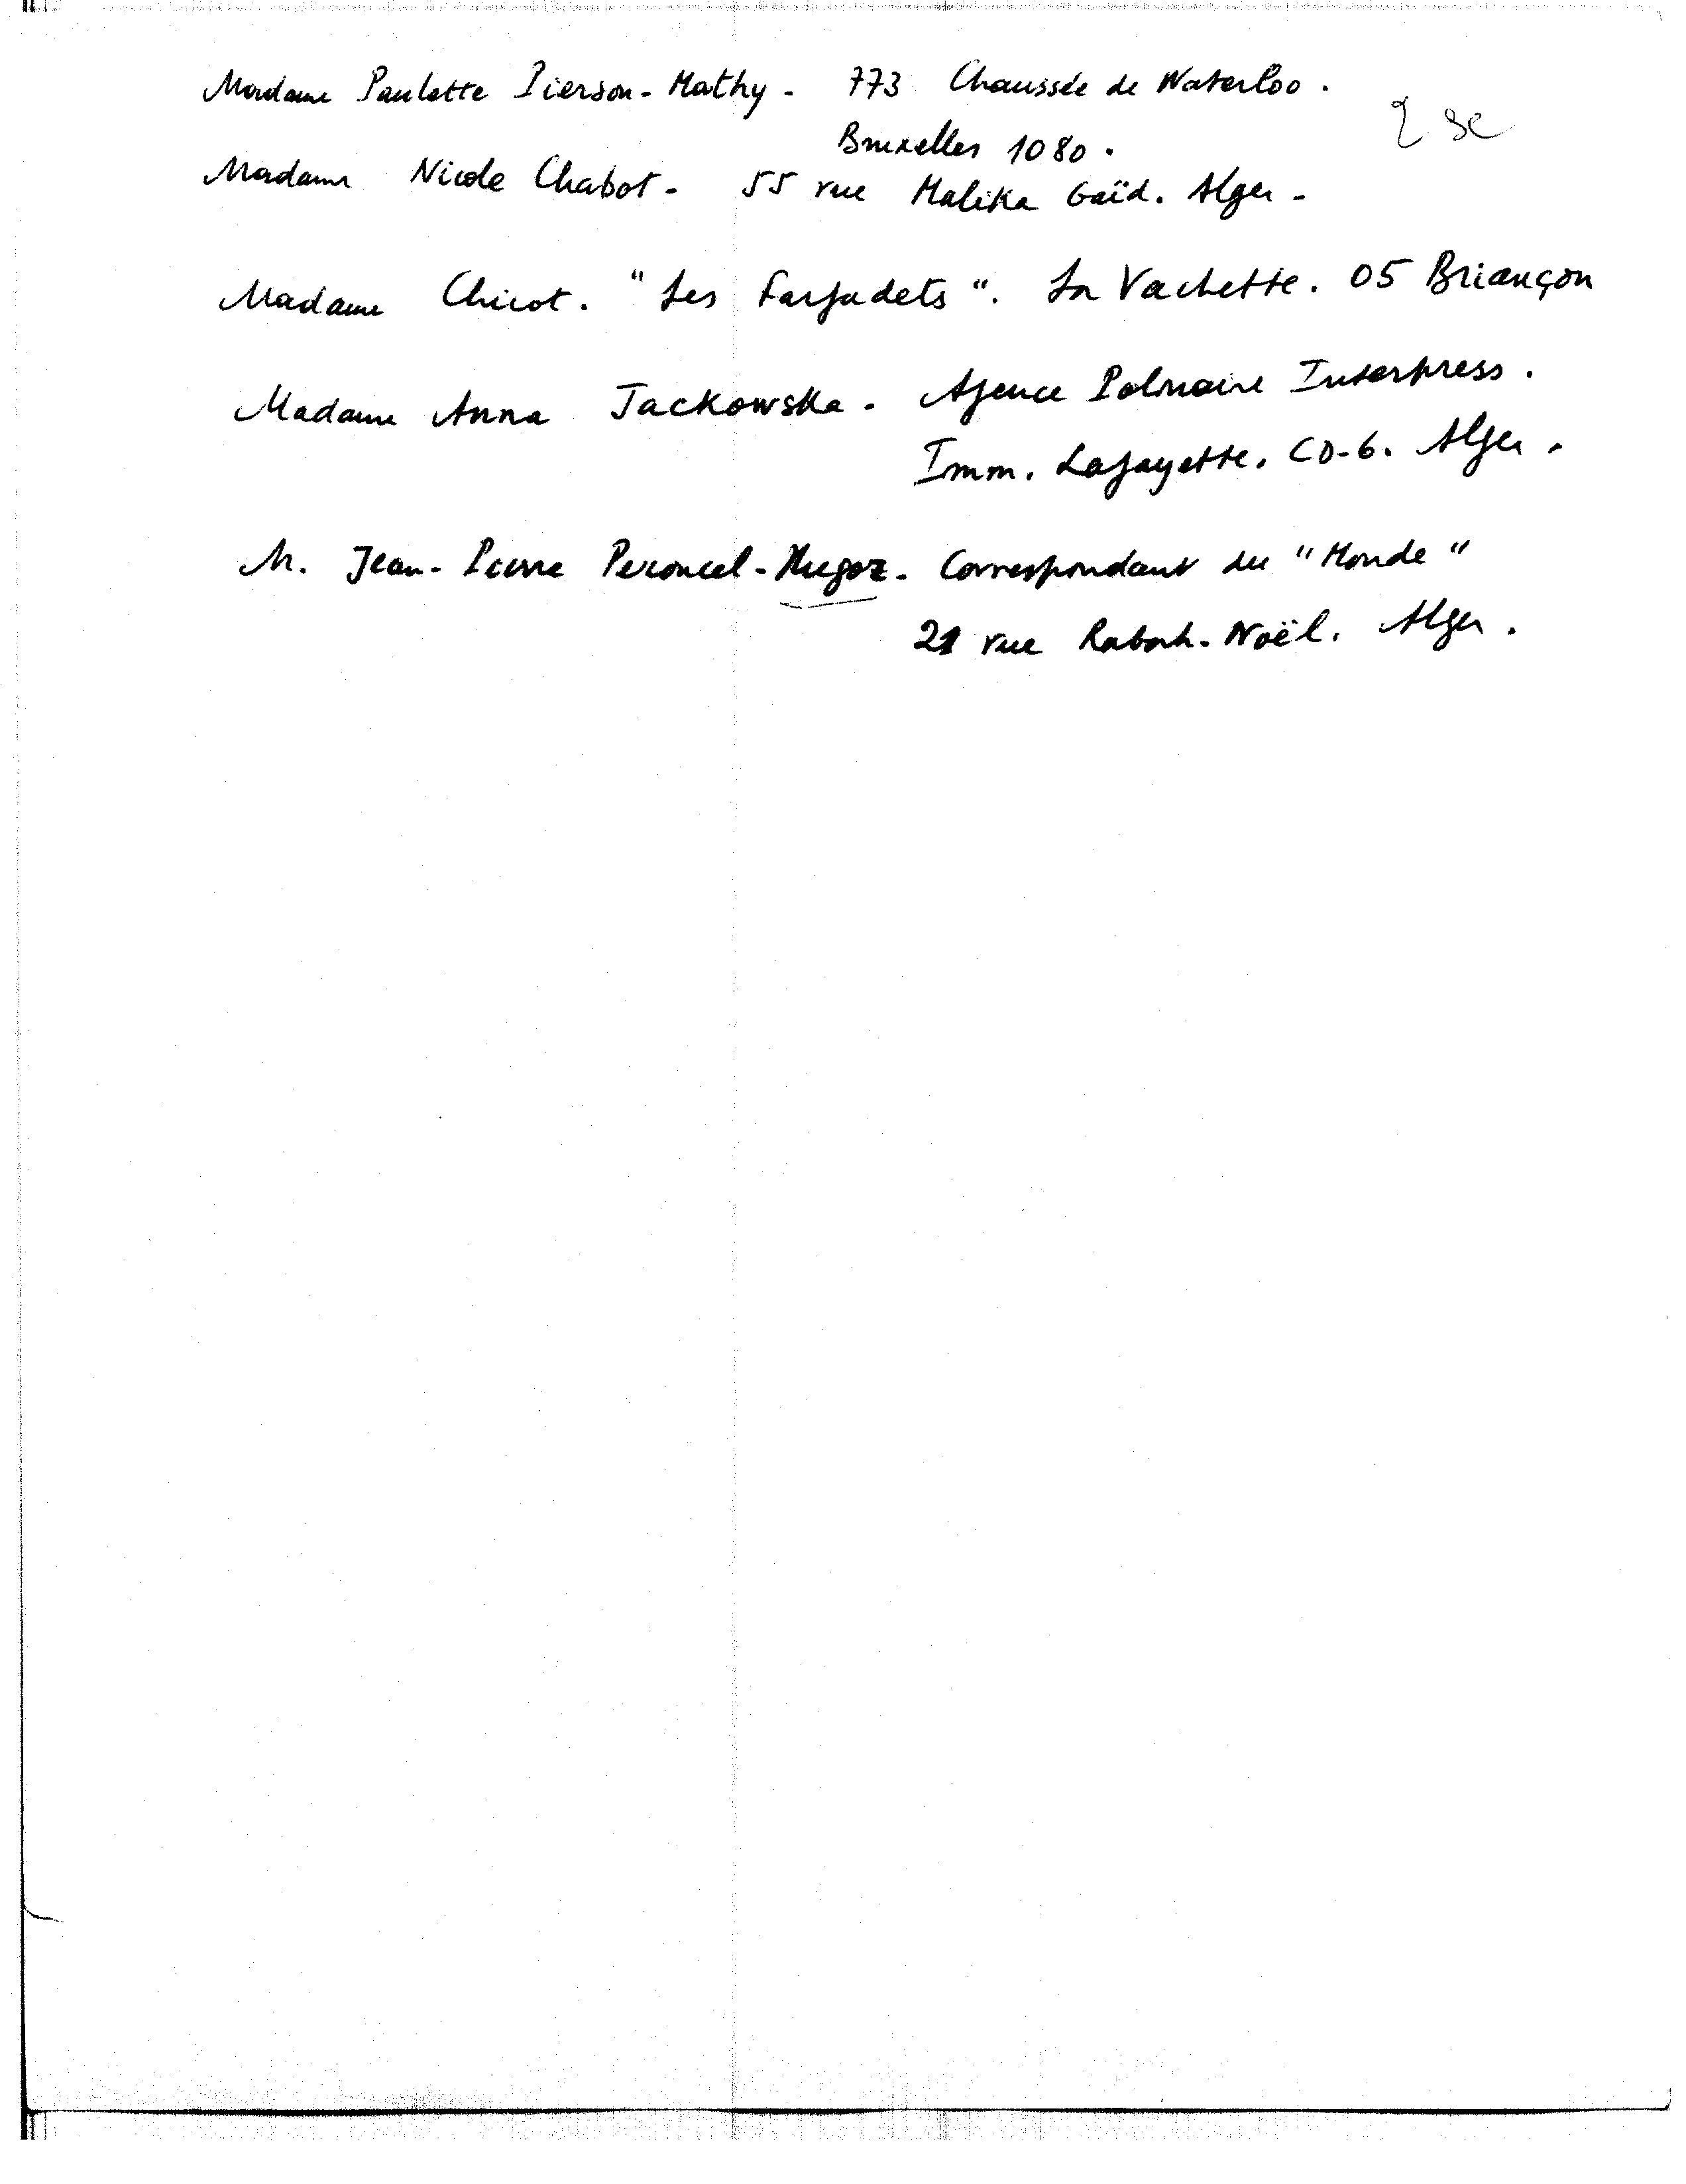 Madame Paulette Pierson-Mathy - 773 Chaussée de Waterloo.
Bruxelles 1080.
Madame Nicole Chabot - 55 rue Malika Gaïd. Alger -
Madame Chicot. "Les Farfadets". La Vachette. 05 Briançon
Madame Anna Jackowska - Agence Polonaise Interpress.
Imm. Lafayette. CD-6. Alger.
M. Jean-Pierre Peroncel-Hugoz - Correspondant du "Monde"
21 rue Rabah-Noël. Alger.